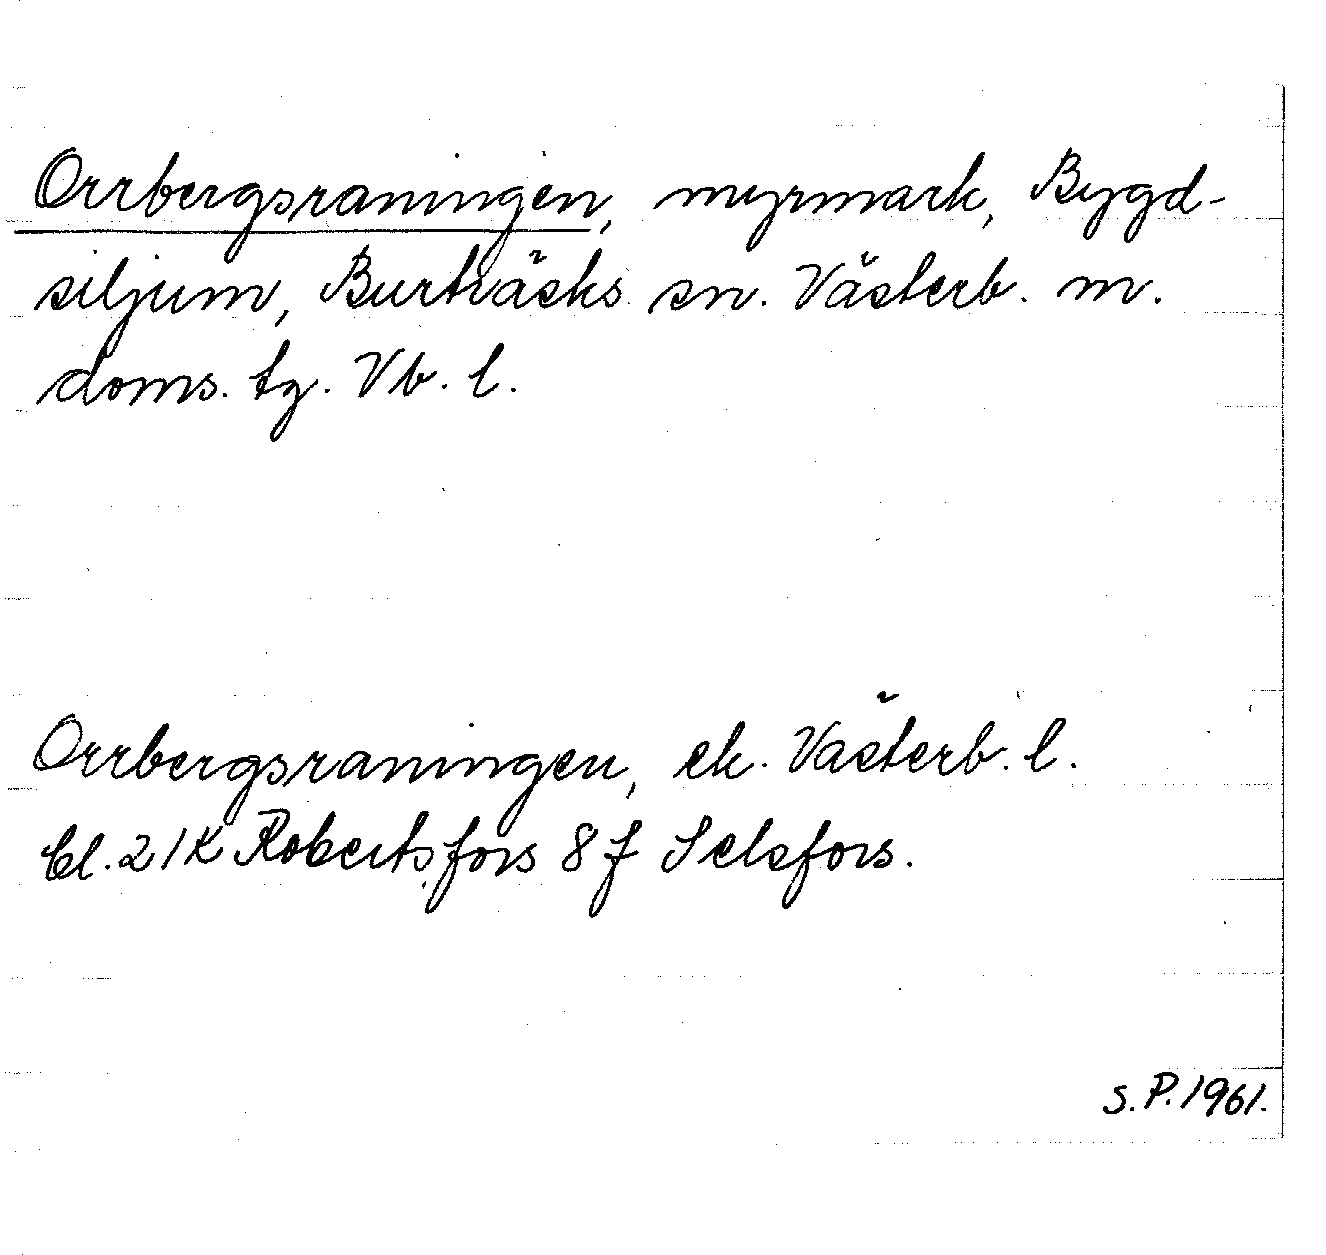 Orrbergsraningen, myrmark, Bygd-
siljum, Burträsks sn. Västerb. m.
doms. tg. Vb. l.
Orrbergsraningen, ek. Västerb. l.
bl. 21K Robertsfors 8f Selsfors.
S.P. 1961.